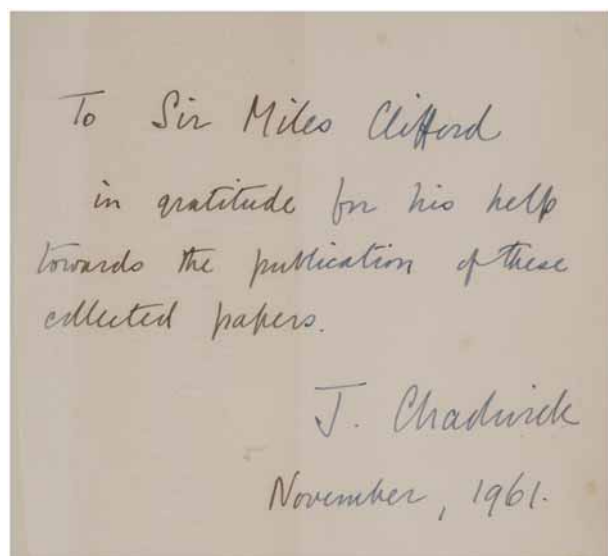 To Sir Miles Clifford
in gratitude for his help
towards the publication of these
collected papers.
J. Chadwick
November, 1961.